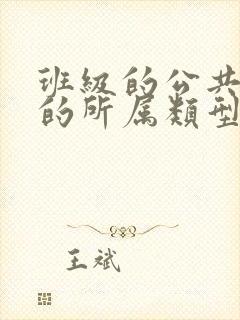 班級的公共
的所属類型
王斌